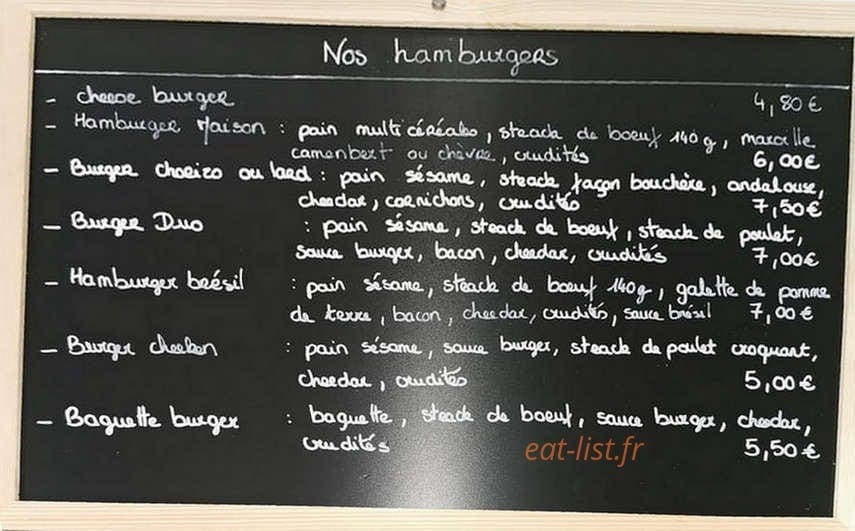 Nos hamburgers
- cheese burger 4,80€
- Hamburger Maison : pain multi céréales, steack de boeuf 140g, maroille
camenbert ou chèvre, crudités 6,00€
- Burger chorizo ou lard : pain sésame, steack façon bouchère, andalouse,
cheedar, cornichons, crudités 7,50€
- Burger Duo : pain sésame, steack de boeuf, steack de poulet,
sauce burger, bacon, cheedar, crudités 7,00€
- Hamburger brésil : pain sésame, steack de boeuf 140g, galette de pomme
de terre, bacon, cheedar, crudités, sauce brésil 7,00€
- Burger cheeken : pain sésame, sauce burger, steack de poulet croquant,
cheedar, crudités 5,00€
- Baguette burger : baguette, steack de boeuf, sauce burger, cheedar,
crudités 5,50€
eat-list.fr